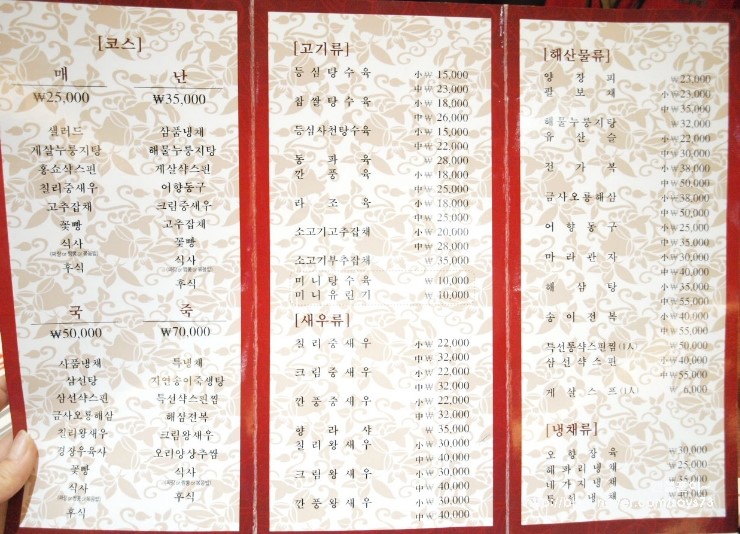 [코스]
매
₩25,000
샐러드
게살누룽지탕
홍쇼샥스핀
칠리중새우
고추잡채
꽃빵
식사
(짜장 or 짬뽕 or 볶음밥)
후식
난
₩35,000
삼품냉채
해물누룽지탕
게살샥스핀
어향동구
크림중새우
고추잡채
꽃빵
식사
(짜장 or 짬뽕 or 볶음밥)
후식
국
₩50,000
사품냉채
삼선탕
삼선샥스핀
금사오룡해삼
칠리왕새우
경장우육사
꽃빵
식사
(짜장 or 짬뽕 or 볶음밥)
후식
죽
₩70,000
특냉채
자연송이죽생탕
특선샥스핀찜
해삼전복
크림왕새우
오리양상추쌈
식사
(짜장 or 짬뽕 or 볶음밥)
후식
[고기류]
등심탕수육 小₩ 15,000
中₩ 23,000
찹쌀탕수육 小₩ 18,000
中₩ 26,000
등심사천탕수육 小₩ 15,000
中₩ 22,000
동파육 ₩ 28,000
깐풍육 小₩ 18,000
中₩ 25,000
라조육 小₩ 18,000
中₩ 25,000
소고기고추잡채 小₩ 20,000
中₩ 28,000
소고기부추잡채 ₩ 35,000
미니탕수육 ₩ 10,000
미니유린기 ₩ 10,000
[새우류]
칠리중새우 小₩ 22,000
中₩ 32,000
크림중새우 小₩ 22,000
中₩ 32,000
깐풍중새우 小₩ 22,000
中₩ 32,000
향라샤 ₩ 35,000
칠리왕새우 小₩ 30,000
中₩ 40,000
크림왕새우 小₩ 30,000
中₩ 40,000
깐풍왕새우 小₩ 30,000
中₩ 40,000
[해산물류]
양경피 ₩23,000
팔보채 小₩23,000
中₩ 35,000
해물누룽지탕 ₩ 32,000
유산슬 小₩ 22,000
中₩ 30,000
전가복 小₩ 38,000
中₩ 50,000
금사오룡해삼 小₩ 38,000
中₩ 50,000
어향동구 小₩ 25,000
中₩ 35,000
마라관자 小₩ 30,000
中₩ 40,000
해삼탕 小₩ 35,000
中₩ 55,000
송이전복 小₩ 40,000
中₩ 55,000
특선통샥스핀찜(1人) ₩50,000
삼선샥스핀 小₩40,000
中₩ 55,000
게살스프(1人) ₩ 6,000
[냉채류]
오향장육 ₩30,000
해파리냉채 ₩25,000
네가지냉채 ₩35,000
특선냉채 ₩40,000